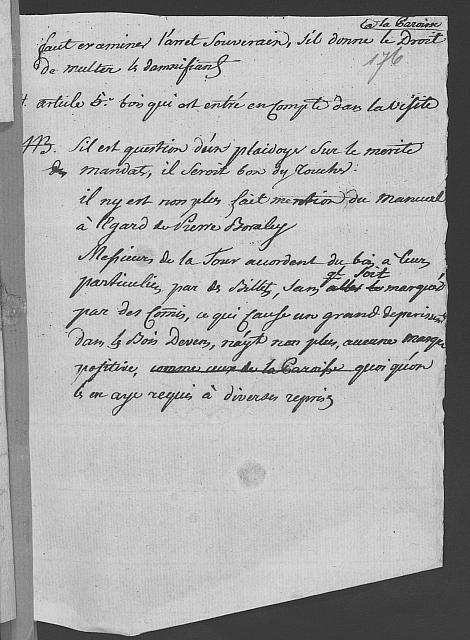 Ca la Paroisse
faut examiner l'arret Souverain, s'il donne le Droit
de multer les damnifians
176
article 5.e bois qui est entré en Compte dans la visite
S'il est question d'un plaidoyé sur le merite
des mandats, il seroit bon d'y toucher.
il n'y est non plus fait mention du manuel
à l'Egard de Pierre Boraley
Messieurs de la Tour acordent du bois à leurs
qe. soit
particuliés par des Billets, sans aller le marqué
par des Comis, ce qui cause un grand deperissem
dans les Bois Devens, n'aÿt non plus, aucune marque
positive, comme ceux de la Paroisse quoi qu'on
les en aye requis à diverses reprises